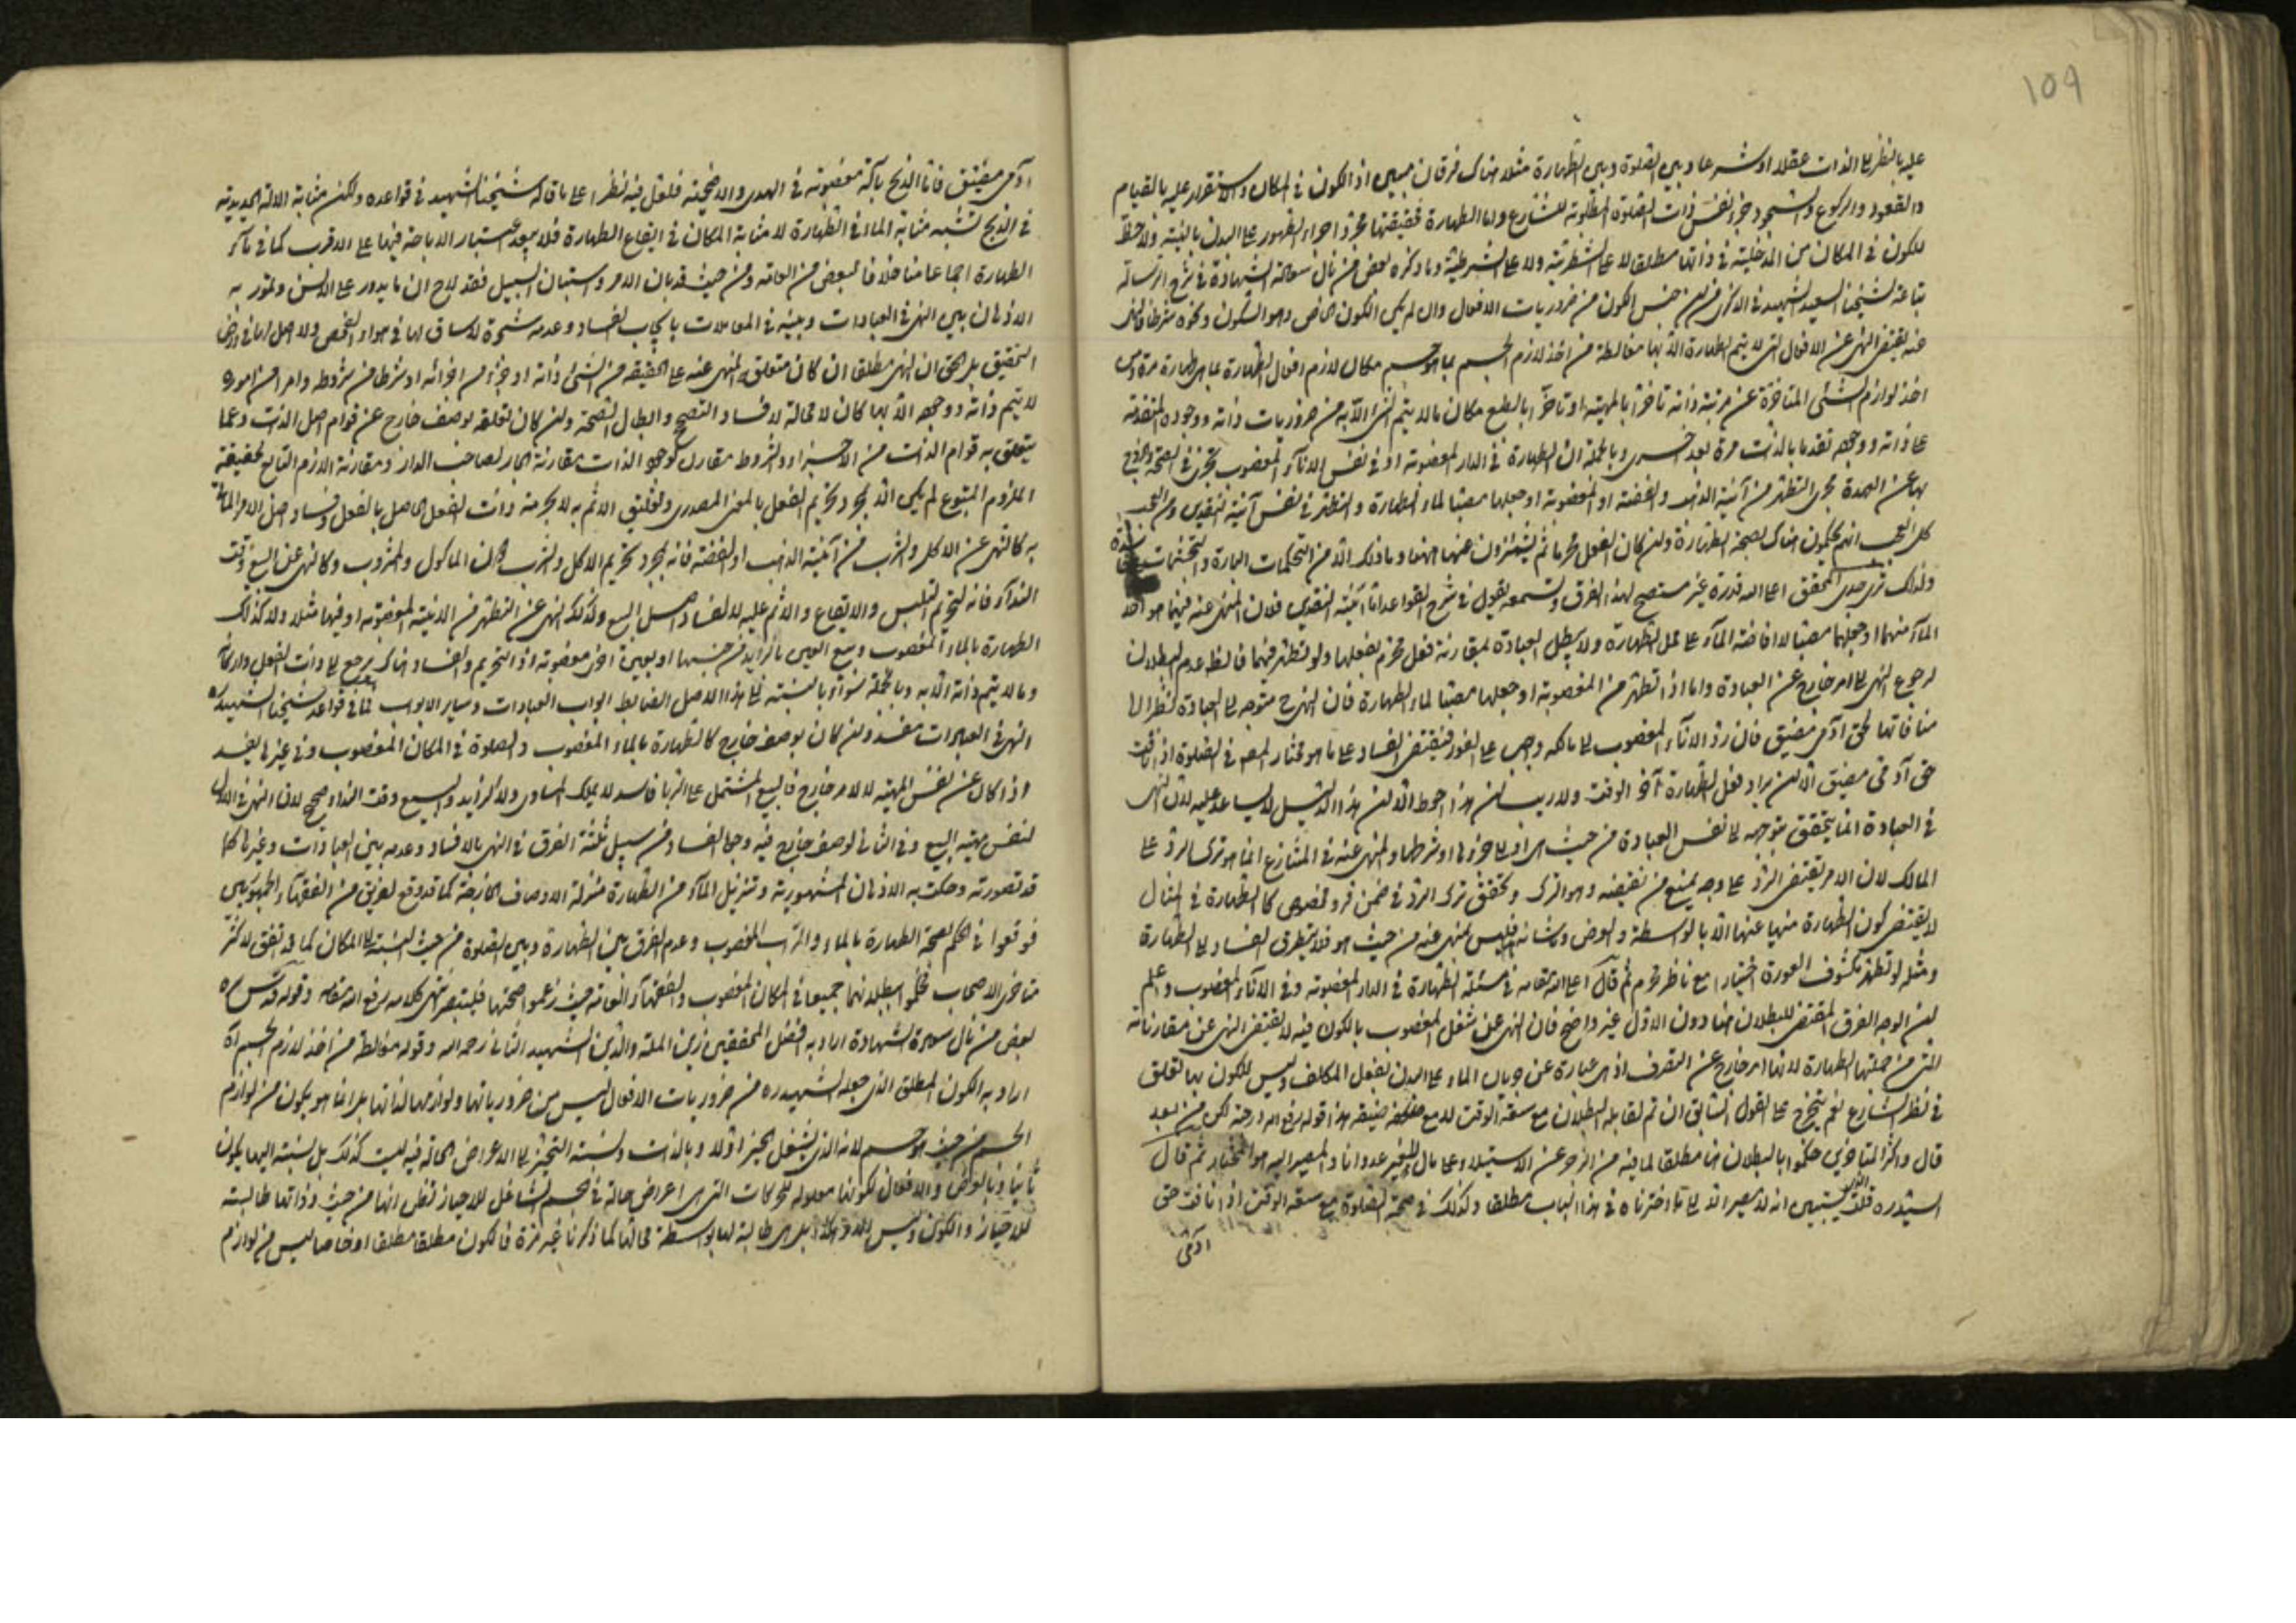 109
عليه بالنظر الى الذات عقلا او شرعا وبين الصلوة وبين الطهارة مثلا هناك فرقان مبين اذ الكون في المكان والاستقرار عليه بالقيام
والقعود والركوع والسجود جزء نفس ذات الصلوة المطلوبة للشارع واما الطهارة فحقيقتها مجرد اجراء الطهور على البدن بالنية ولا حظ
للكون في المكان من المدخلية في ذاتها مطلقا لا على الشطرية ولا على الشرطية وما ذكره بعض من نال سعادة الشهادة في شرح الرسالة
تباعة لشيخنا السعيد الشهيد في الذكرى من ان جنس الكون من ضروريات الافعال وان لم يكن الكون الخاص وهو السكون ونحوه شرطا فالنهى
عنه يقتضى النهى عن الافعال التى لا يتم الطهارة الا بها مغالطة من اخذ لازم الجسم بما هو جسم مكان لازم افعال الطهارة بما هى طهارة مرة ومن
اخذ لوازم الشئ المتاخرة عن مرتبة ذاته تاخرا بالمهية او تاخرا بالطبع مكان ما لا يتم الشئ الا به من ضروريات ذاته ووجوده المتقدمة
على ذاته ووجوده تقدما بالذات مرة بعد اخرى وبالجملة ان الطهارة في الدار المغصوبة او في نفس الاناء المغصوب تجرى في الصحة والخروج
بها عن العهدة مجرى التطهر من آنية الذهب والفضة او المغصوبة او جعلها مصبا لماء الطهارة والتطهر في نفس آنية النقدين ومن العجب
كل العجب انهم يحكمون هناك بصحة الطهارة وان كان الفعل محرما ثم يشمئزون عنها ههنا وما ذلك الا من التحكمات الباردة والتجشمات
ولذلك ترى جدى المحقق اعلى الله قدره غير مستصح لهذا الفرق وتسمعه يقول في شرح القواعد اما آنية النقدين فلان المنهى عنه فيهما هو اخذ
الماء منهما او جعلهما مصبا لافاضة الماء على محل الطهارة ولا يبطل العبادة لمقارنة فعل محرم لفعلها ولو تطهر فيهما فالظاهر عدم البطلان
لرجوع النهى الى امر خارج عن العبادة واما اذا تطهر من المغصوبة او جعلها مصبا لماء الطهارة فان النهى ح متوجه الى العبادة نظرا الى
منافاتها لحق آدمى مضيق فان رد الاناء المغصوب الى مالكه واجب على الفور فيقتضى الفساد على ما هو مختار المصنف في الصلوة اذا نافت
حق آدمى مضيق الا ان يراد فعل الطهارة آخر الوقت ولا ريب ان هذا احوط الا ان هذا الدليل لا يساعد عليه لان النهى
في العبادة انما يتحقق بتوجهه الى نفس العبادة من حيث هى او الى جزءها او شرطها والمنهى عنه في المتنازع انما هو ترك الرد على
المالك لان الامر يقتضى الرد على وجه يمنع من نقيضه وهو الترك وتحقق ترك الرد في ضمن فرد مخصوص كالطهارة في المثال
لا يقتضى كون الطهارة منهيا عنها الا بالواسطة والعرض وما شانه ذلك ليس بمنهى عنه من حيث هو فلا يتطرق الفساد الى الطهارة
ومثله لو تطهر مكشوف العورة اختيارا مع ناظر محرم ثم قال اعلى الله مقامه في مسئلة الطهارة في الدار المغصوبة وفي الاناء المغصوب واعلم
ان الوجه الفرق المقتضى للبطلان هنا دون الاول غير واضح فان النهى عن شغل المغصوب بالكون فيه لا يقتضى النهى عن مقارناته
التى من جملتها الطهارة لانها امر خارج عن التصرف اذ هى عبارة عن جريان الماء على البدن بفعل المكلف وليس للكون بها تعلق
في نظر الشارع نعم يتخرج على القول السابق ان تم لقابله البطلان مع سعة الوقت لا مع ضيقه هذا قوله رفع الله درجته لكن من بعد
قال واكثر المتاخرين حكموا بالبطلان هنا مطلقا لما فيه من الزجر عن الاستيلاء على مال الغير عدوانا والمصير اليه هو المختار ثم قال
السيد ره فلا يستبين انه لا مصير الا الى ما اخترناه في هذا الباب مطلقا وكذلك في صحة الصلوة مع سعة الوقت اذا نافت حق
آدمى
آدمى مضيق فاما الذبح بآلة مغصوبة في الهدى والاضحية فلعل فيه نظرا على ما قاله شيخنا الشهيد في قواعده ولكن مثابة الالة الحديدية
في الذبح تشبه مثابة الماء في الطهارة لا مثابة المكان في ايقاع الطهارة فلا يبعد اعتبار الاباحة فيها على الاقرب كما في ماء
الطهارة اجماعا منا خلافا لبعض من العامة ومن حيث قد بان الامر واستبان السبيل فقد لاح ان ما يدور على الالسن وتمور به
الاذهان بين النهى في العبادات وبينه في المعاملات بايجاب الفساد وعدمه شجرة لا ساق لها في هواء الفحص ولا اصل لها في ارض
التحقيق بل الحق ان النهى مطلقا ان كان متعلق المنهى عنه على الحقيقة من الشئ ذاته او جزء من اجزائه او شرطا من شروطه وامر من امور
لا يتم ذاته ووجوده الا بها كان لا محالة لافساد التصحيح وابطال الصحة وان كان لتعلقه بوصف خارج عن قوام اصل الذات وعما
يتعلق به قوام الذات من الاجزاء والشروط مقارن لوجود الذات مقارنة الجار لصاحب الدار ومقارنة اللازم التابع لحقيقة
الملزوم المتبوع لم يكن الا لمجرد تحريم الفعل بالمعنى المصدرى وتعليق الاثم به لا بحرمة ذات الفعل الحاصل بالفعل وفساد اصل الامر المأتى
به كالنهى عن الاكل والشرب من آنية الذهب او الفضة فانه لمجرد تحريم الاكل والشرب لا لذات الماكول والمشروب وكالنهى عن البيع وقت
النداء فانه لتحريم التلبس والايقاع والاثم عليه لا لفساد اصل البيع وكذلك النهى عن التطهر من الانية المغصوبة او فيها مثلا ولا كذلك
الطهارة بالماء المغصوب وبيع العين بالزايد من جنسها او بعين اخرى مغصوبة اذ التحريم والفساد هناك يرجع الى ذات الفعل واركانه
وما لا يتم ذاته الا به وبالجملة سواء بالنسبة الى هذا الاصل الضابط ابواب العبادات وساير الابواب فما في قواعد شيخنا الشهيد ره
النهى في العبادات مفسد وان كان بوصف خارج كالطهارة بالماء المغصوب والصلوة في المكان المغصوب وفي غيرها يفسد
اذا كان عن نفس المهية لا لامر خارج فالبيع المشتمل على الربا فاسد لا يملك المساوى ولا الزايد والبيع وقت النداء صحيح لان النهى في الاول
لنفس مهية البيع وفي الثانى لوصف خارج فيه وجها الفساد من سبيل ثلثة الفرق في النهى بالافساد وعدمه بين العبادات وغيرها كما
قد تصورته وحكت به الاذهان المشهورية وتنزيل الماء من الطهارة منزلة الاوصاف الخارجة كما قد وقع لفريق من الفقهاء الجمهوريين
فوقعوا في الحكم بصحة الطهارة بالماء والتراب المغصوب وعدم الفرق بين الطهارة وبين الصلوة من حيث النسبة الى المكان كما قد تفق لاكثر
متاخرى الاصحاب فحكموا ببطلانهما جميعا في المكان المغصوب والفقهاء العامة حيث زعموا صحتها فليتبصر انتهى كلامه رفع الله مقامه وقوله قدس سره
بعض من نال سعادة الشهادة اراد به افضل المحققين زين الملة والدين الشهيد الثانى رحمه الله وقوله مغالطة من اخذ لازم الجسم آه
اراد به الكون المطلق الذى جعله الشهيد ره من ضروريات الافعال ليس من ضرورياتها ولوازمها لذاتها بل انما هو يكون من لوازم
الجسم من حيث هو جسم لانه الذى يشغل الحيز اولا وبالذات ونسبة التحيز الى الاعراض الحالة فيه ليست كذلك بل نسبته اليها يكون
ثانيا وبالعرض والافعال لكونها معلولة للحركات التى هى اعراض حالة في الجسم الشاغل للاحياز فظن انها من حيث ذواتها طالبة
للاحياز والكون وليس الامر هكذا بل هى طالبة لها بواسطة محالها كما ذكرنا غير مرة فالكون مطلقا مطلقا او خاصا ليس من لوازم